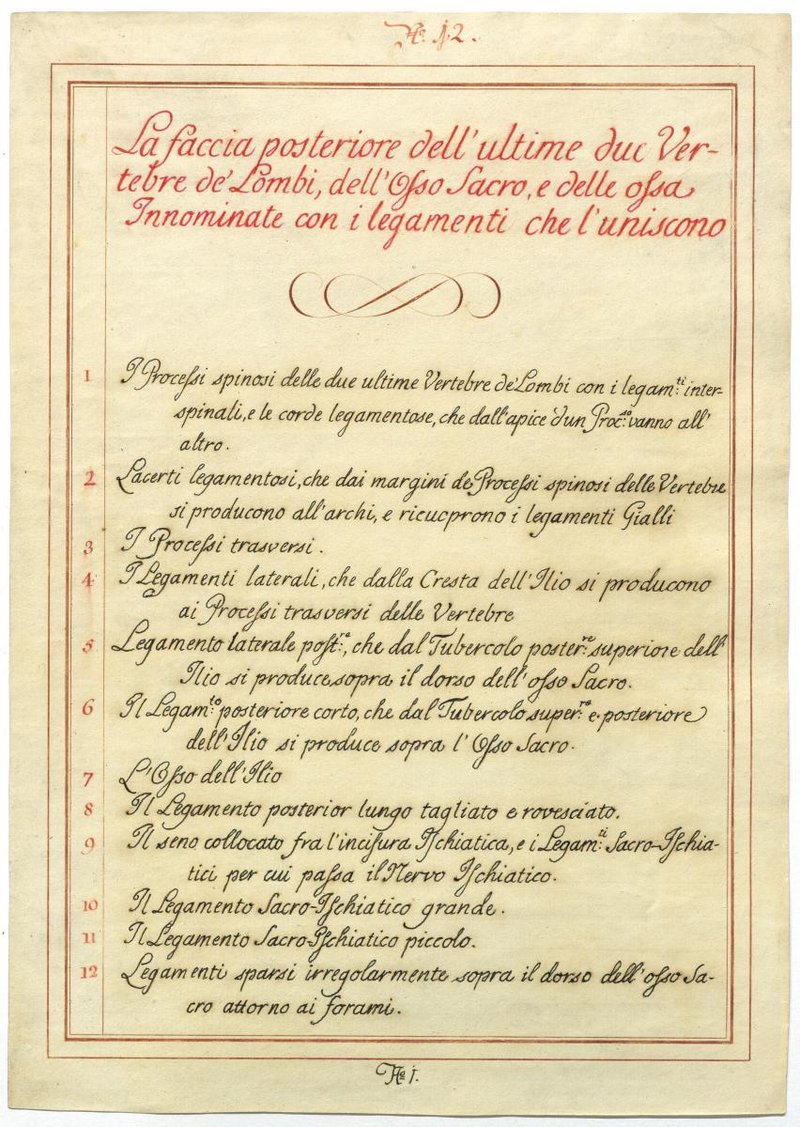 No. 12.
La faccia posteriore dell'ultime due Ver-
tebre de' Lombi, dell'Osso Sacro, e delle ossa
Innominate con i legamenti che l'uniscono
1 I Processi spinosi delle due ultime Vertebre de'Lombi con i legam.ti inter-
spinali, e le corde legamentose, che dall'apice d'un Proc.so vanno all'
altro.
2 Lacerti legamentosi, che dai margini de Processi spinosi delle Vertebre
si producono all'archi, e ricuoprono i legamenti Gialli
3 I Processi trasversi.
4 I Legamenti laterali, che dalla Cresta dell'Ilio si producono
ai Processi trasversi delle Vertebre
5 Legamento laterale post.re, che dal Tubercolo poster.re superiore dell'
Ilio si produce sopra il dorso dell'osso Sacro.
6 Il Legam.to posteriore corto, che dal Tubercolo super.re e posteriore
dell'Ilio si produce sopra l'Osso Sacro.
7 L'Osso dell'Ilio
8 Il Legamento posterior lungo tagliato e rovesciato.
9 Il seno collocato fra l'incisura Ischiatica, e i Legam.ti Sacro-Ischia-
tici per cui passa il Nervo Ischiatico.
10 Il Legamento Sacro-Ischiatico grande.
11 Il Legamento Sacro-Ischiatico piccolo.
12 Legamenti sparsi irregolarmente sopra il dorso dell'osso Sa-
cro attorno ai forami.
No 1.